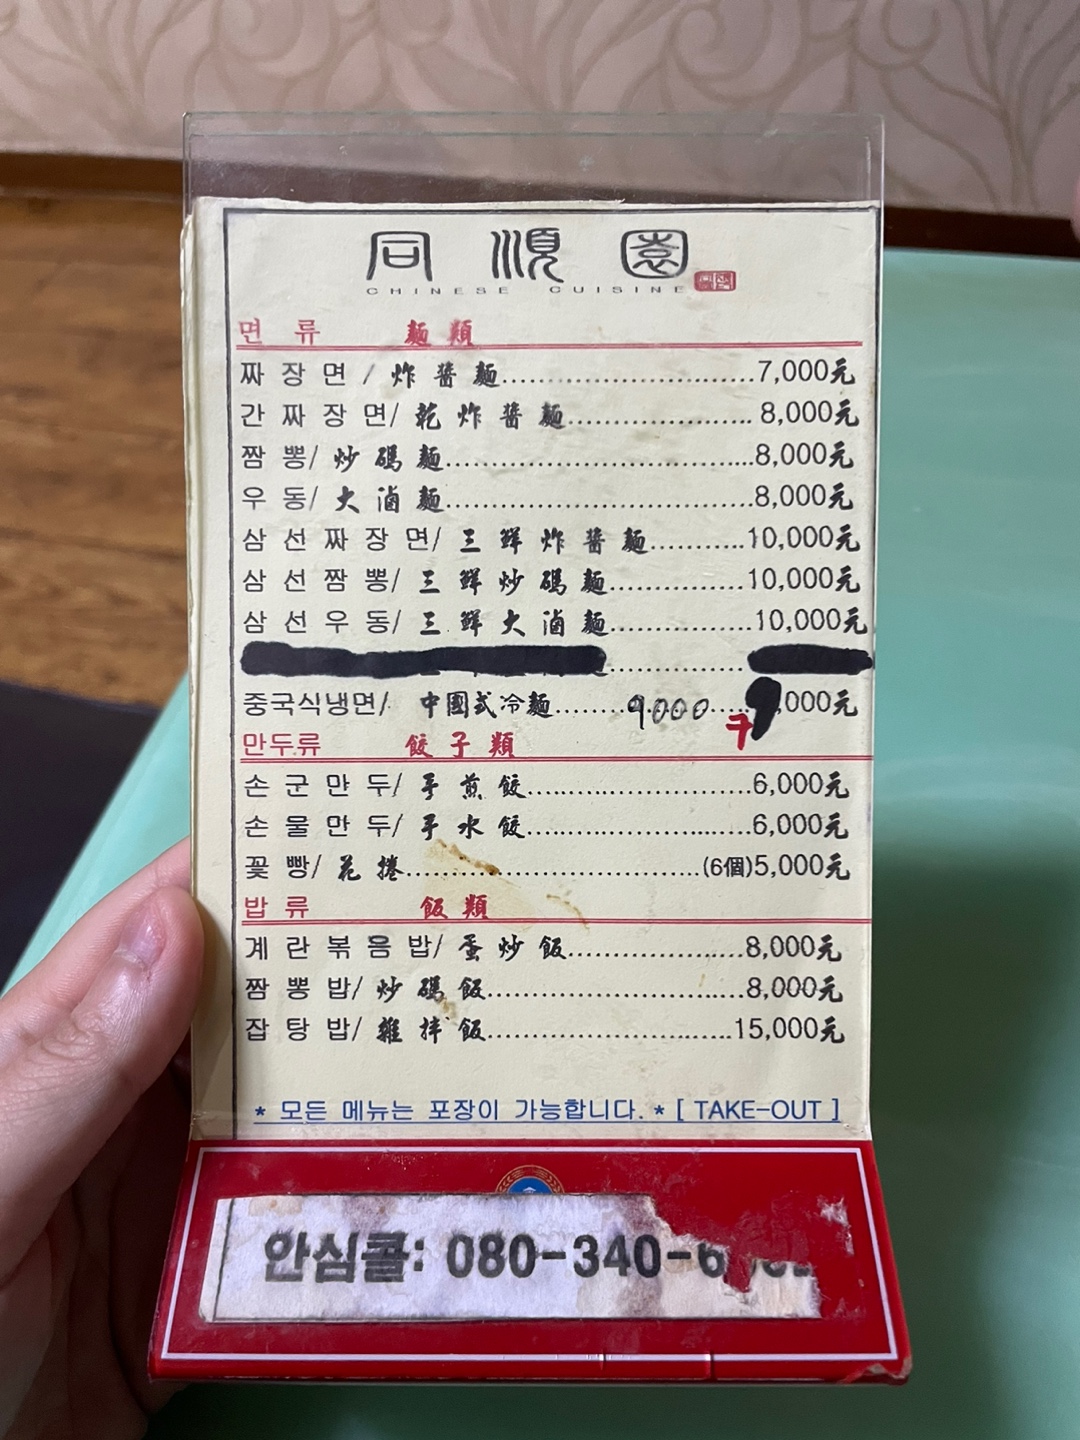 同順園
CHINESE CUISINE
면류 麵類
짜장면/炸醬麵 7,000元
간짜장면/乾炸醬麵 8,000元
짬뽕/炒碼麵 8,000元
우동/大滷麵 8,000元
삼선짜장면/三鮮炸醬麵 10,000元
삼선짬뽕/三鮮炒碼麵 10,000元
삼선우동/三鮮大滷麵 10,000元
중국식냉면/中國式冷麵 9000 ,000元
만두류 餃子類
손군만두/手煎餃 6,000元
손물만두/手水餃 6,000元
꽃빵/花捲 (6個)5,000元
밥류 飯類
계란볶음밥/蛋炒飯 8,000元
짬뽕밥/炒碼飯 8,000元
잡탕밥/雜拌飯 15,000元
* 모든 메뉴는 포장이 가능합니다. * [ TAKE-OUT ]
안심콜: 080-340-6